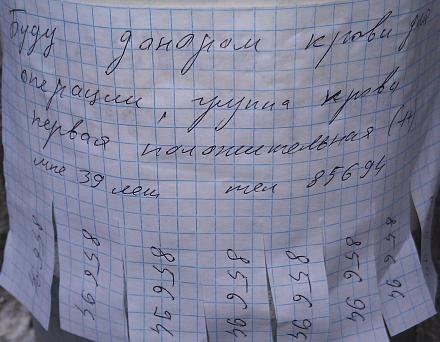 Буду донором крови для
операции, группа крови
первая положительная (+)
мне 39 лет тел 85694
85694
85694
85694
85694
85694
85694
85694